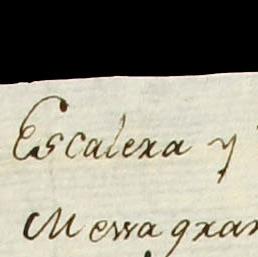 Escalera y
Messa gran